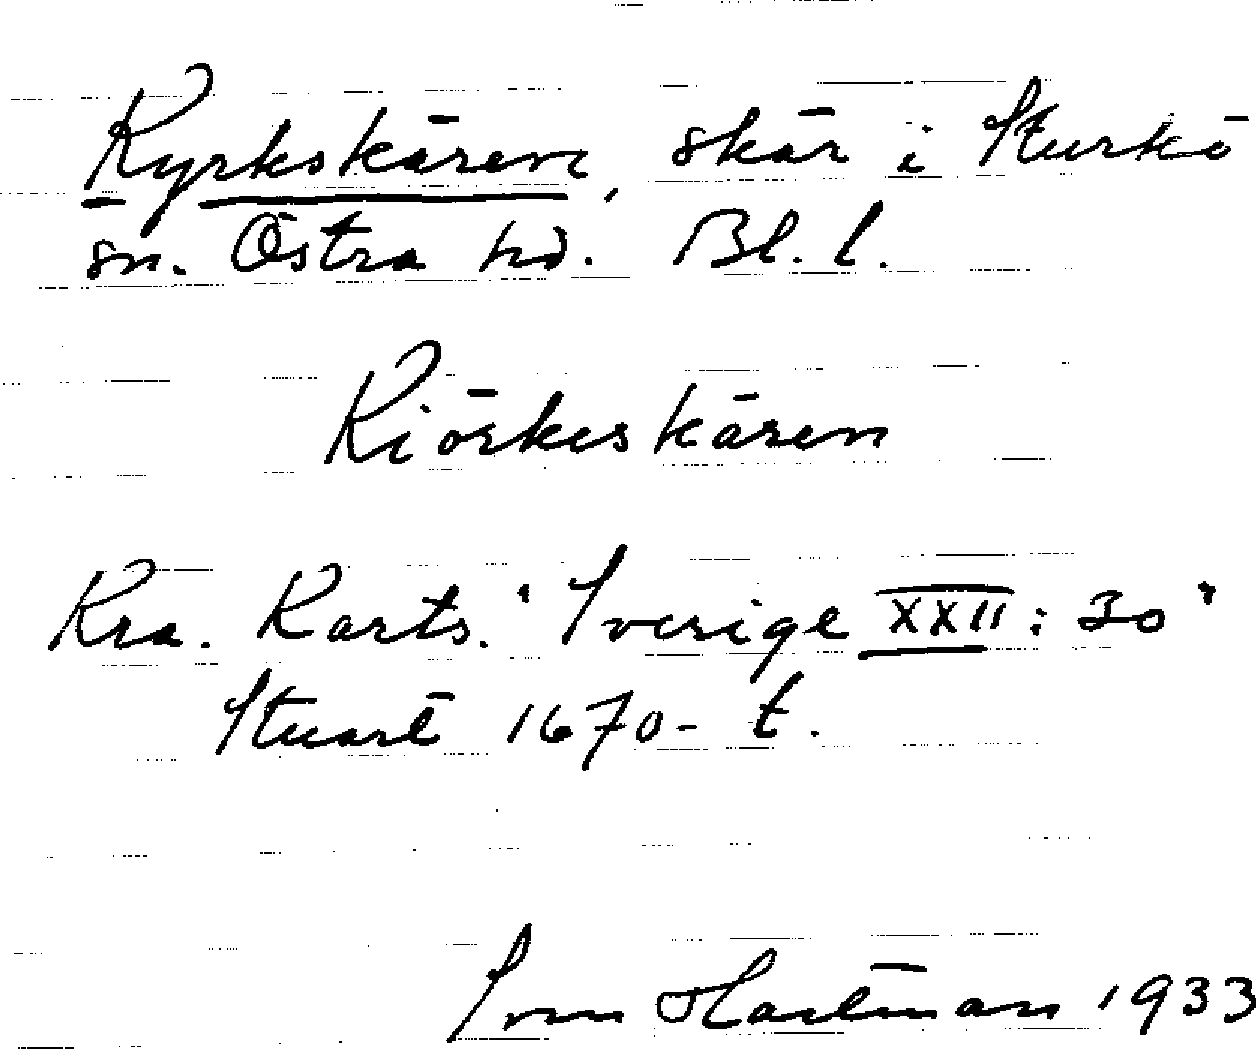 Kyrkskären, skär i Sturkö
sn. Östra hd. Bl. l.
Kiörkeskären
Kra. Karts. "Sverige XXII: 30"
Stuart 1670-t.
Sven Hartman 1933